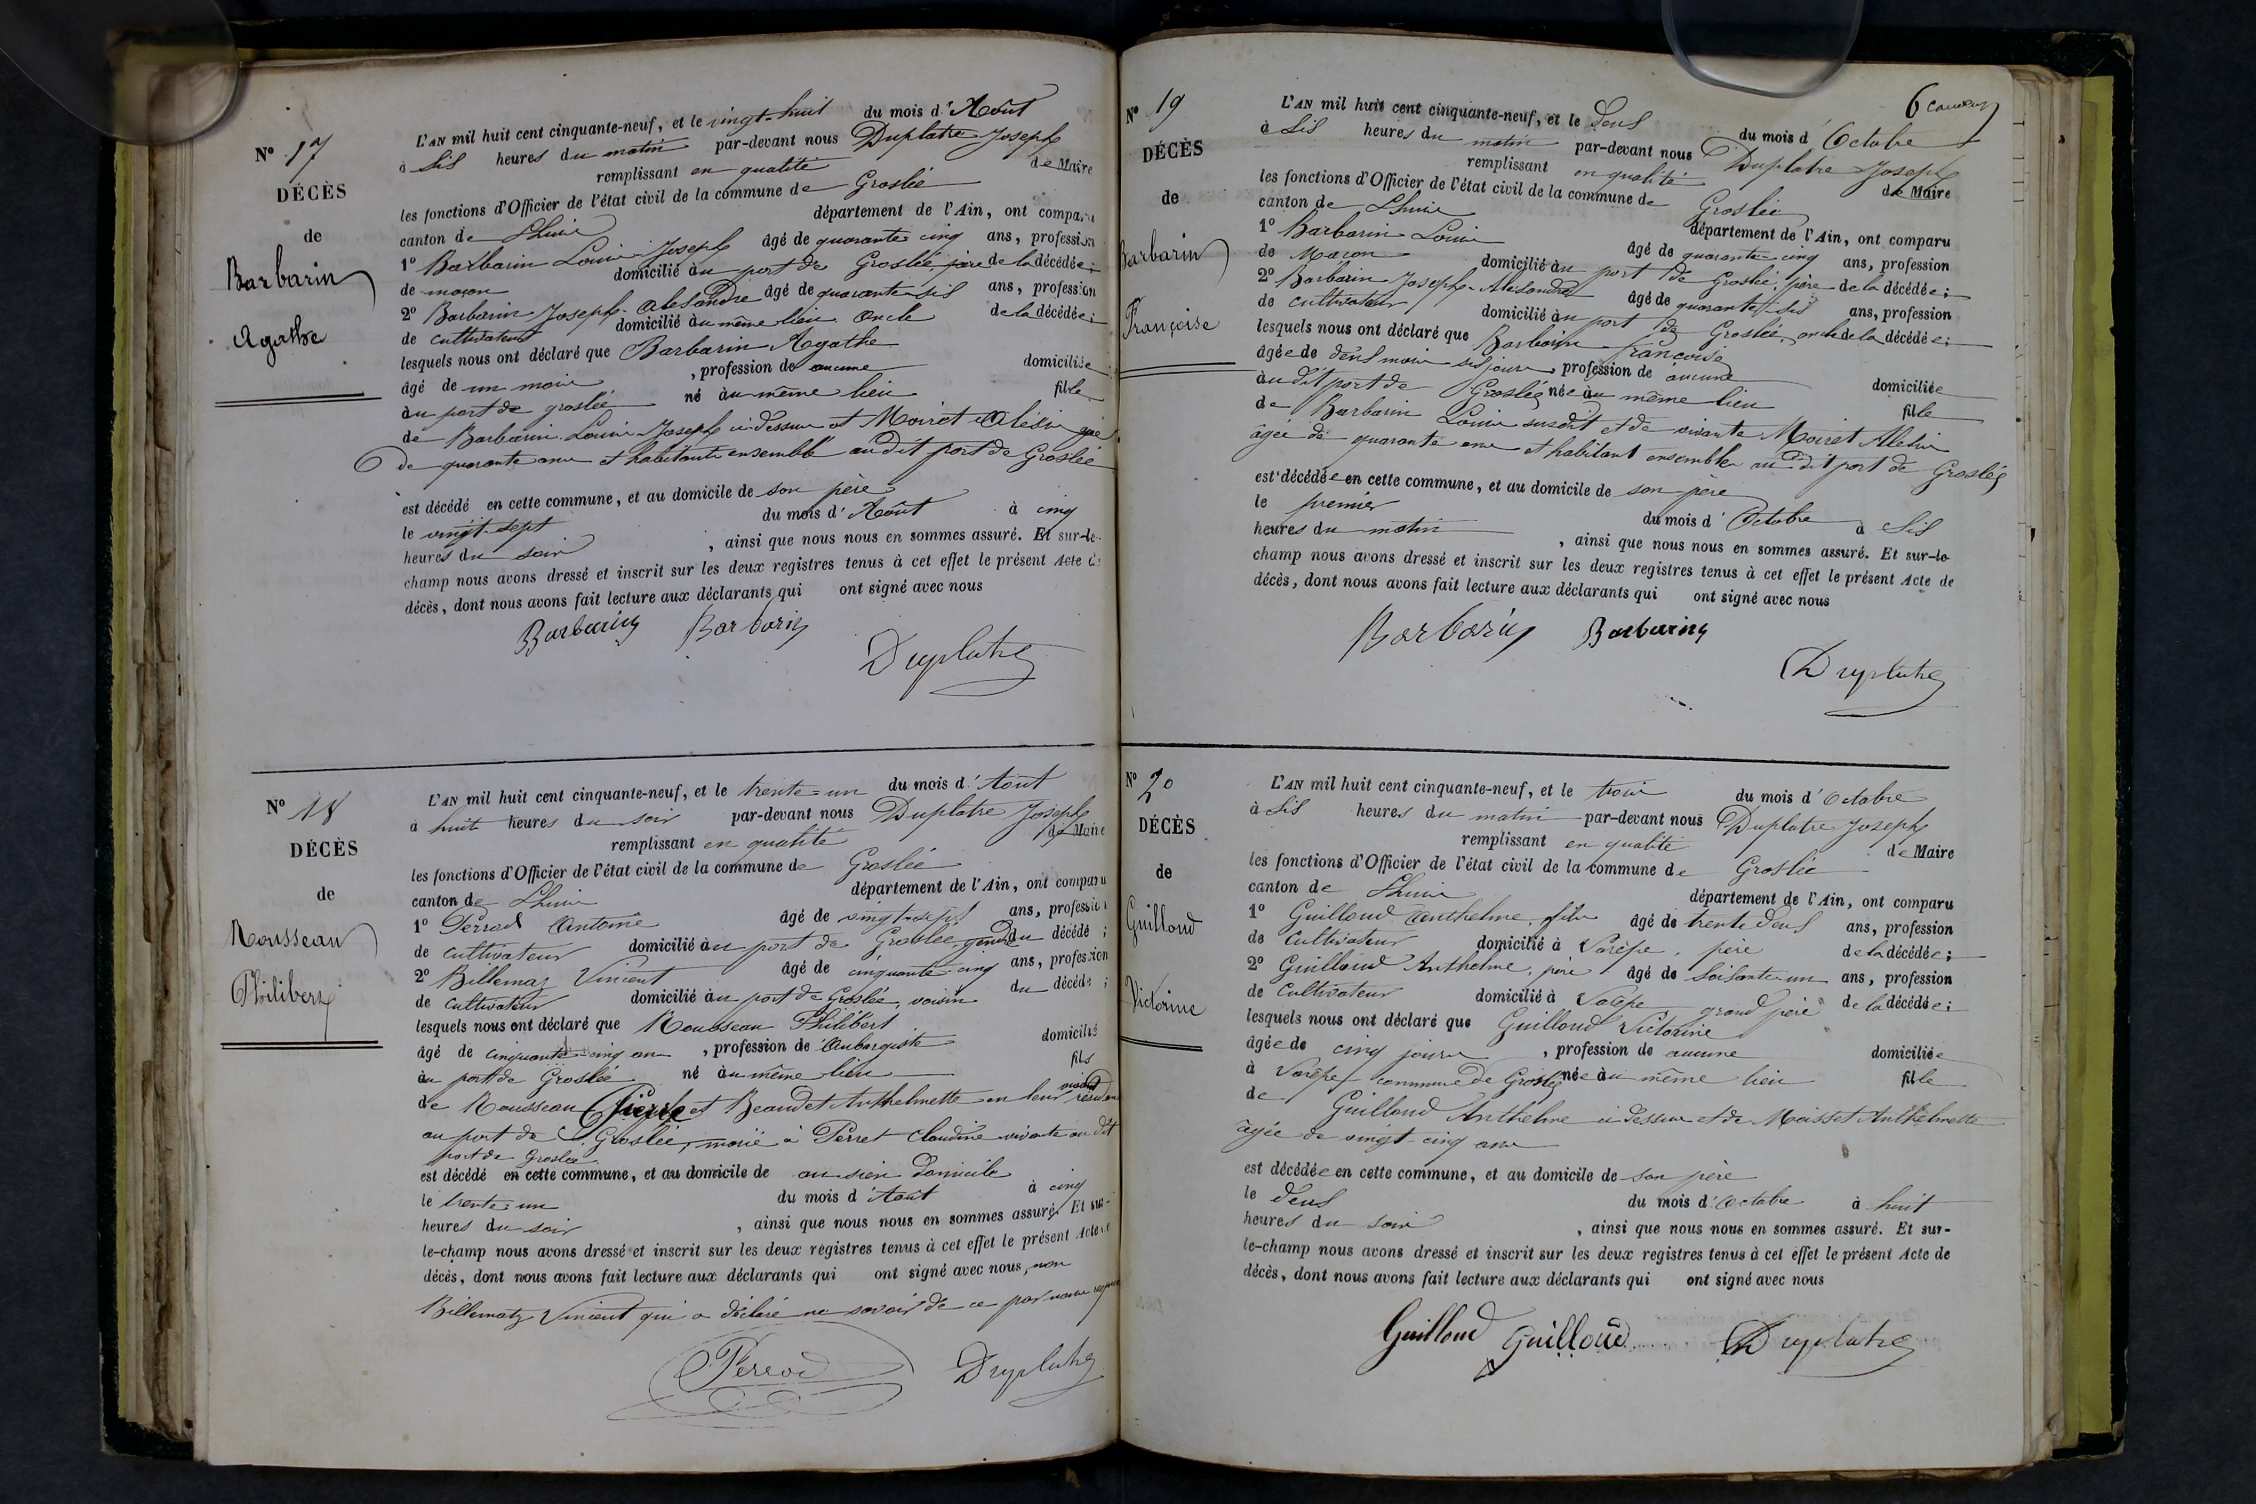 N° 17
DÉCÈS
de
Barbarin
Agathe
L'AN mil huit cent cinquante-neuf, et le vingt-huit du mois d'Août
à sis heures du matin par-devant nous Duplatre Joseph
remplissant en qualité de Maire
les fonctions d'Officier de l'état civil de la commune de Groslée
canton de Lhuis département de l'Ain, ont comparu
1° Barbarin Louis Joseph âgé de quarante cinq ans, profession
de maçon domicilié au port de Groslée, père de la décédée;
2° Barbarin Joseph-Alesandre âgé de quarante-sis ans, profession
de cultivateur domicilié au même lieu oncle de la décédée;
lesquels nous ont déclaré que Barbarin Agathe
âgé de un mois, profession de aucune domiciliée
au port de groslée né au même lieu fille
de Barbarin Louis Joseph ci-dessus et Moiret Alésie âgée
de quarante ans et habitants ensemble au dit port de Groslée
est décédé en cette commune, et au domicile de son père
le vingt-sept du mois d'Août à cinq
heures du soir, ainsi que nous nous en sommes assuré. Et sur-le-
champ nous avons dressé et inscrit sur les deux registres tenus à cet effet le présent Acte de
décès, dont nous avons fait lecture aux déclarants qui ont signé avec nous
Barbarin Barbarin
Duplatre
N° 18
DÉCÈS
de
Rousseau
Philibert
L'AN mil huit cent cinquante-neuf, et le trente-un du mois d'Août
à huit heures du soir par-devant nous Duplatre Joseph
remplissant en qualité de Maire
les fonctions d'Officier de l'état civil de la commune de Groslée
canton de Lhuis département de l'Ain, ont comparu
1° Perrod Antoine âgé de vingt-sept ans, profession
de cultivateur domicilié au port de Groslée, gendre du décédé;
2° Billemaz Vincent âgé de cinquante-cinq ans, profession
de cultivateur domicilié au port de Groslée, voisin du décédé;
lesquels nous ont déclaré que Rousseau Philibert
âgé de cinquante-cinq ans, profession de Aubergiste domicilié
au port de Groslée né au même lieu fils
de Rousseau Pierre et Beaudet Anthelmette en leur vivant résidant
au port de Groslée, marié à Perret Claudine vivante au dit
port de Groslée
est décédé en cette commune, et au domicile de au sien domicile
le trente-un du mois d'Août à cinq
heures du soir, ainsi que nous nous en sommes assuré. Et sur-
le-champ nous avons dressé et inscrit sur les deux registres tenus à cet effet le présent Acte de
décès, dont nous avons fait lecture aux déclarants qui ont signé avec nous, non
Billematz Vincent qui a déclaré ne savoir de ce par nous requis
Perrod Duplatre
6
N° 19
DÉCÈS
de
Barbarin
Françoise
L'AN mil huit cent cinquante-neuf, et le deus du mois d'Octobre
à sis heures du matin par-devant nous Duplatre Joseph
remplissant en qualité de Maire
les fonctions d'Officier de l'état civil de la commune de Groslée
canton de Lhuis département de l'Ain, ont comparu
1° Barbarin Louis âgé de quarante cinq ans, profession
de Maçon domicilié au port de Groslée, père de la décédée;
2° Barbarin Joseph-Alesandre âgé de quarante-sis ans, profession
de cultivateur domicilié au port de Groslée, oncle de la décédée;
lesquels nous ont déclaré que Barbarin françoise
âgée de deus mois sis jours, profession de aucune domiciliée
au dit port de Groslée née au même lieu fille
de Barbarin Louis susdit et de vivante Moiret Alésie
âgée de quarante ans et habitant ensemble au dit port de Groslée
est décédée en cette commune, et au domicile de son père
le premier du mois d'Octobre à sis
heures du matin, ainsi que nous nous en sommes assuré. Et sur-le-
champ nous avons dressé et inscrit sur les deux registres tenus à cet effet le présent Acte de
décès, dont nous avons fait lecture aux déclarants qui ont signé avec nous
Barbarin Barbarin
Duplatre
N° 20
DÉCÈS
de
Guilloud
Victorine
L'AN mil huit cent cinquante-neuf, et le trois du mois d'Octobre
à sis heures du matin par-devant nous Duplatre Joseph
remplissant en qualité de Maire
les fonctions d'Officier de l'état civil de la commune de Groslée
canton de Lhuis département de l'Ain, ont comparu
1° Guilloud Anthelme, fils âgé de trente deus ans, profession
de Cultivateur domicilié à Varêpe, père de la décédée;
2° Guilloud Anthelme, père âgé de soisante-un ans, profession
de Cultivateur domicilié à Varêpe grand père de la décédée;
lesquels nous ont déclaré que Guilloud Victorine
âgée de cinq jours, profession de aucune domiciliée
à Varêpe commune de Groslée née au même lieu fille
de Guilloud Anthelme ci-dessus et de Moisset Anthelmette
âgée de vingt cinq ans
est décédée en cette commune, et au domicile de son père
le deus du mois d'Octobre à huit
heures du soir, ainsi que nous nous en sommes assuré. Et sur-
le-champ nous avons dressé et inscrit sur les deux registres tenus à cet effet le présent Acte de
décès, dont nous avons fait lecture aux déclarants qui ont signé avec nous
Guilloud Guilloud Duplatre